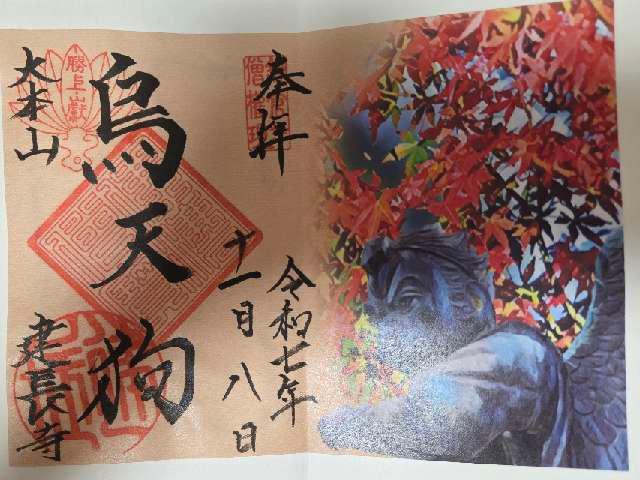 奉拝
令和七年
十一月八日
烏天狗
勝上嶽
大本山
建長寺